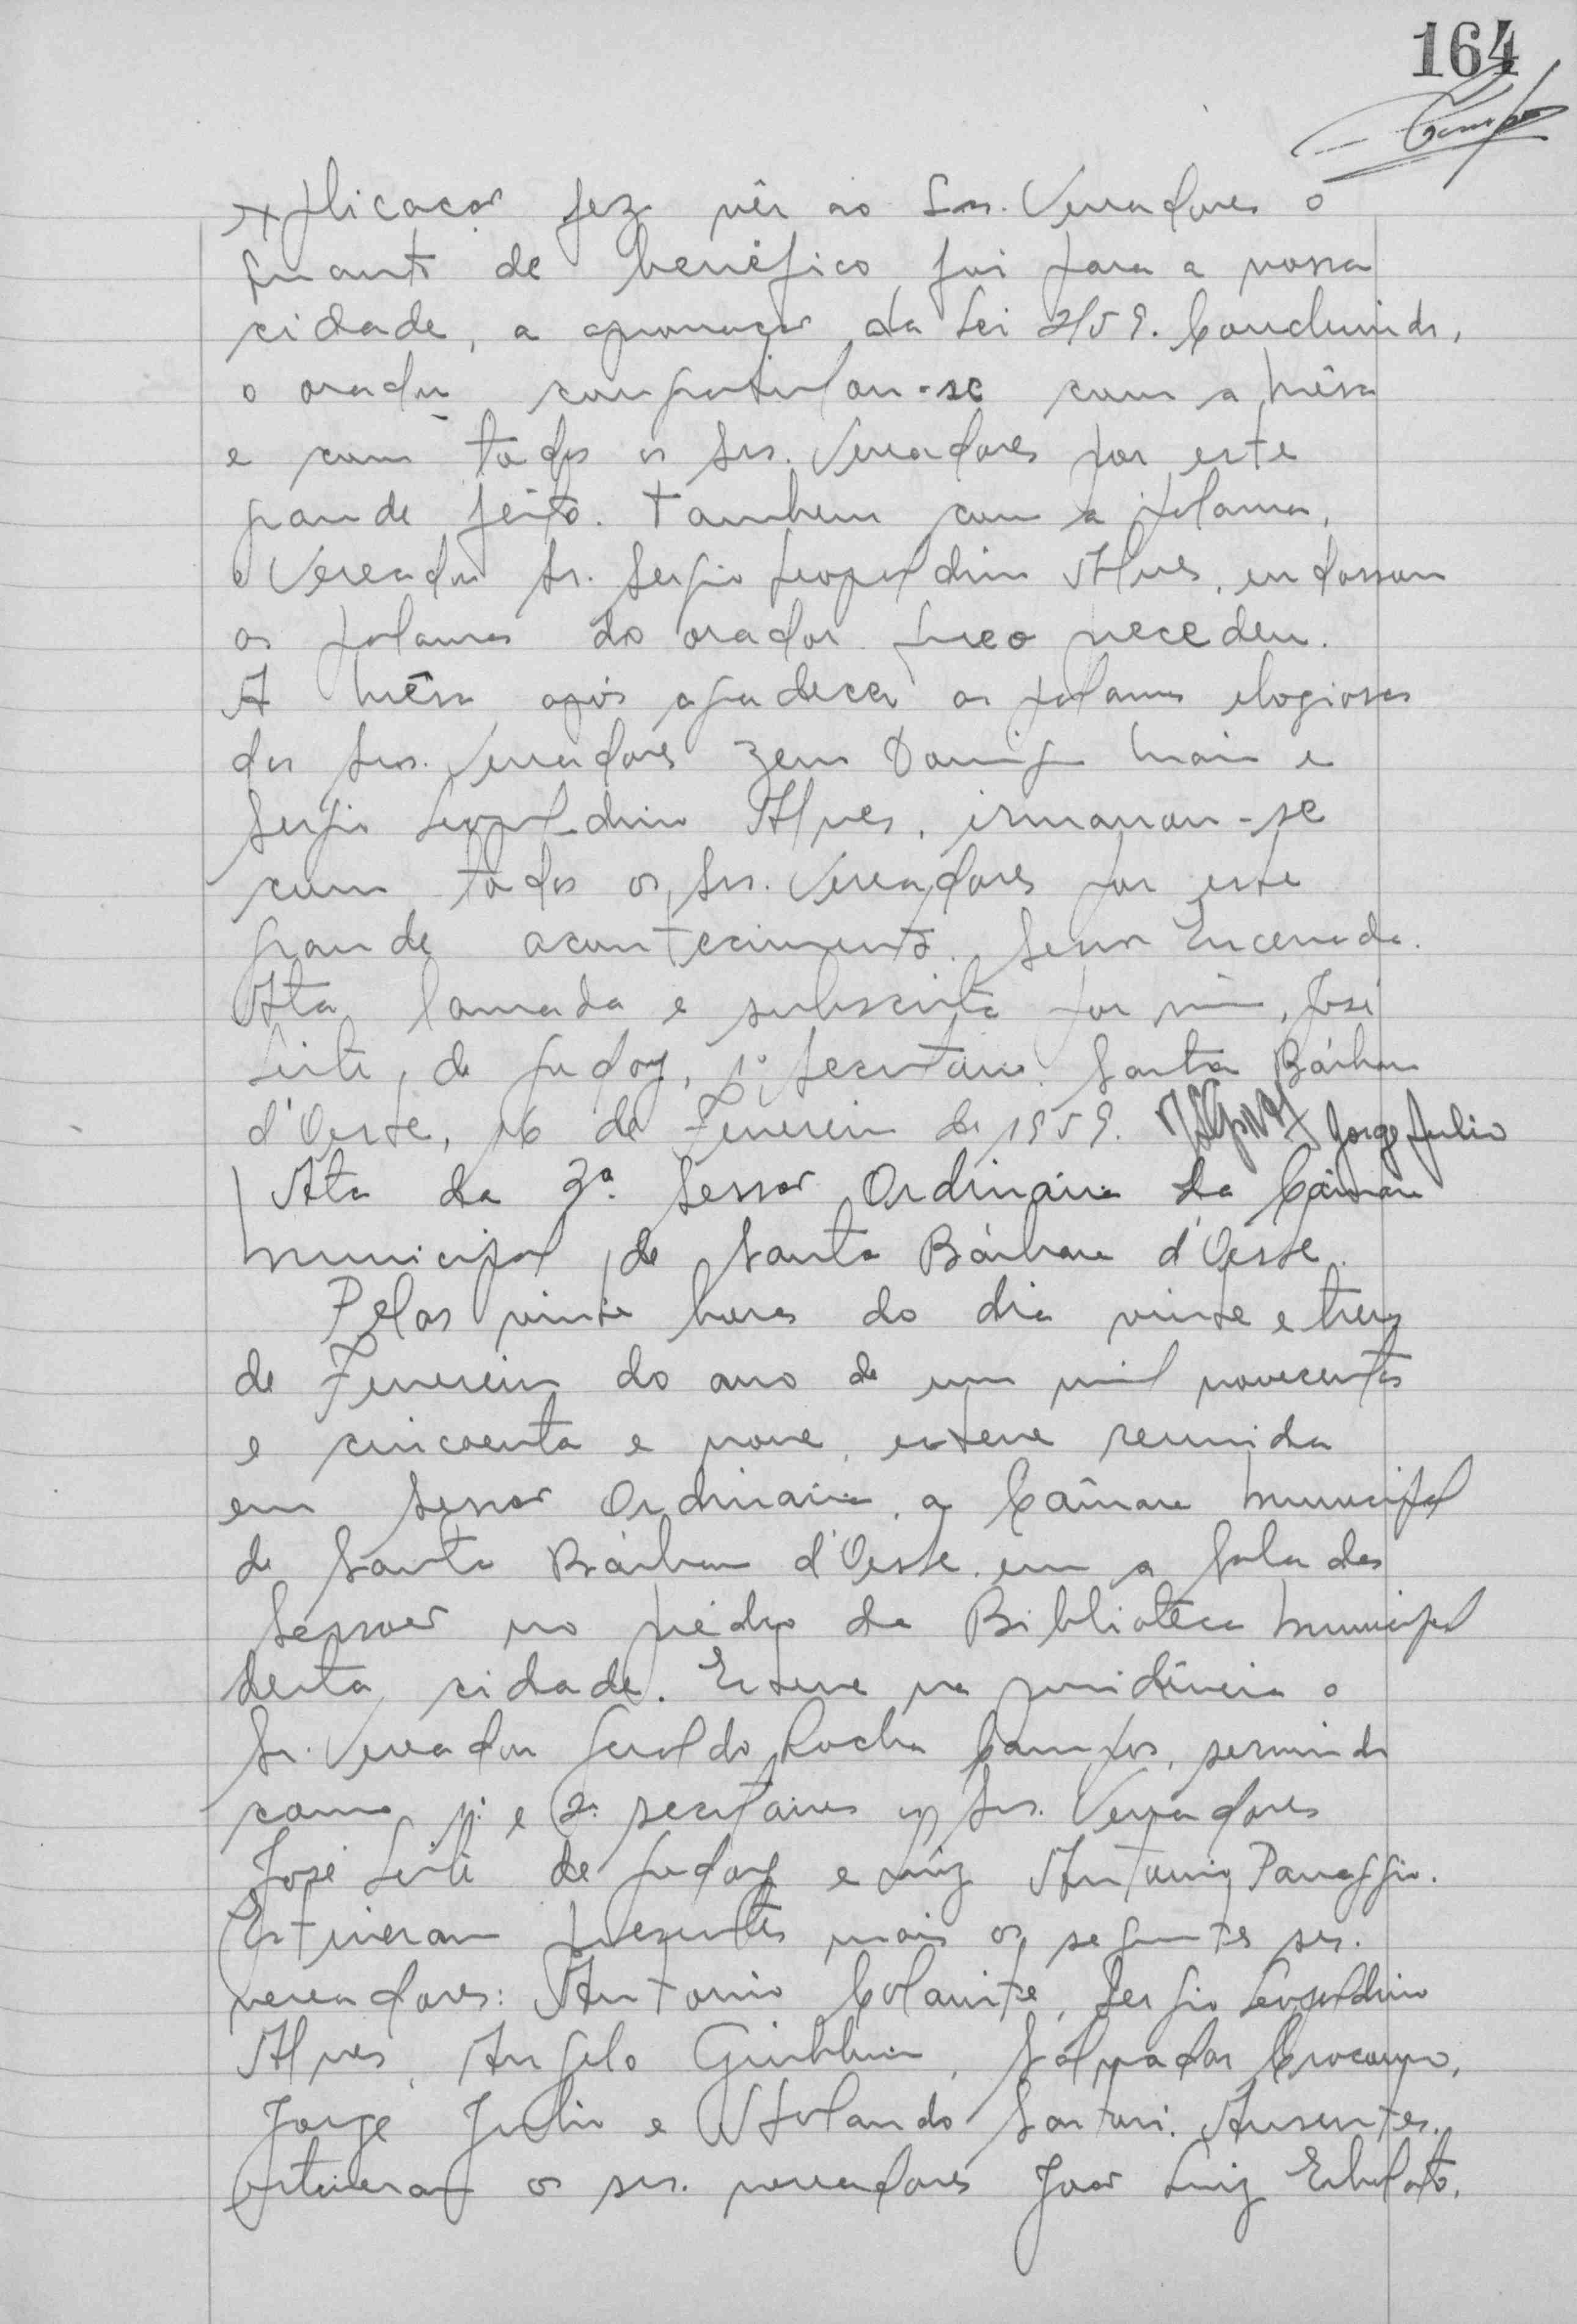 164
Campos
explicação fez vêr ao Srs. Vereadores o
quanto de benéfico foi para a nossa
cidade, a aprovação da Lei 2/59. Concluindo,
o orador congratulou-se com a Mêsa
e com todos os Srs. Vereadores por este
grande feito. Tambem com a palavra,
o Vereador Sr. Sergio Leopoldino Alves, endossou
as palavras do orador que o precedeu.
A Mêsa após agradecer as palavras elogiosas
dos Srs. Vereadores Domingos Maia e
Sergio Leopoldino Alves, irmanou-se
com todos os Srs. Vereadores por este
grande acontecimento. Sessão Encerrada.
Ata lavrada e subscrita por mim, José
Leite de Godoy, 1º Secretario. Santa Bárbara
d'Oeste, 16 de Fevereiro de 1959. Jorge Julio
Ata da 3ª Sessão Ordinária da Câmara
Municipal de Santa Bárbara d'Oeste.
Pelas vinte horas do dia vinte e tres
de Fevereiro do ano de um mil novecentos
e cincoenta e nove, esteve reunida
em Sessão Ordinária, a Câmara Municipal
de Santa Bárbara d'Oeste, em a Sala das
Sessões no prédio da Biblioteca Municipal
desta cidade. Esteve na presidência o
Sr. Vereador Geraldo Rocha Campos, servindo
como 1º e 2º secretários os Srs. Vereadores
José Leite de Godoy e Luiz Antonio Panaggio.
Estiveram presentes mais os seguintes srs.
vereadores: Antonio Colavite, Sergio Leopoldino
Alves, Angelo Giubbina, Salvador Crocomo,
Jorge Julio e Orlando Sartori. Ausentes
estiveram os srs. vereadores João Luiz